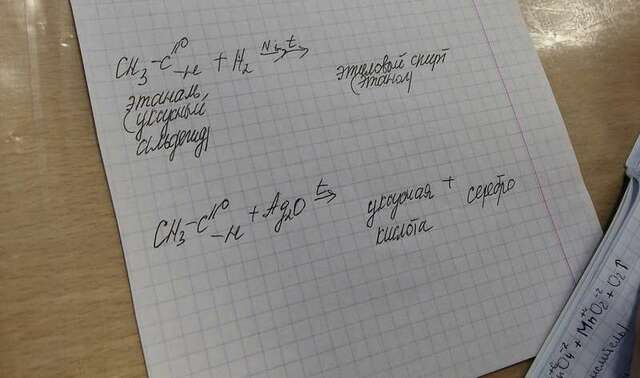 CH₃-C=O-H + H₂ Ni, t →
этиловый спирт
(этанол)
этаналь,
(уксусный
альдегид)
CH₃-C=O-H + Ag₂O t →
уксусная + серебро
кислота
MnO₂ + O₂↑